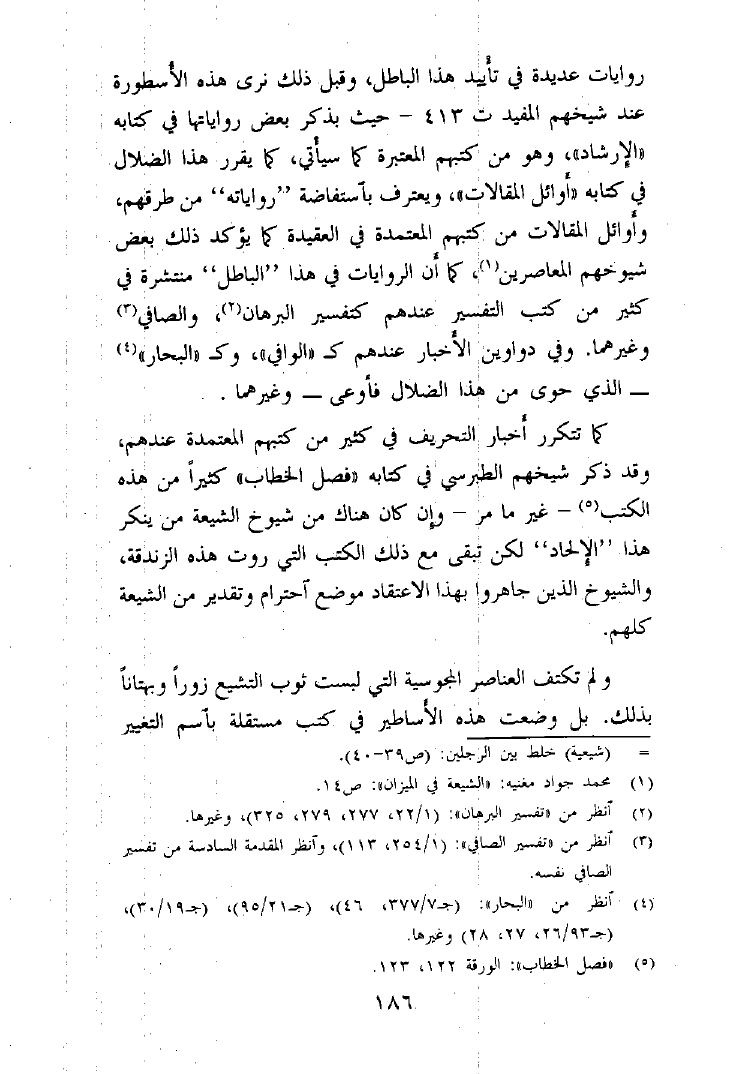 روايات عديدة في تأييد هذا الباطل، وقبل ذلك نرى هذه الأسطورة
عند شيخهم المفيد ت ٤١٣ - حيث يذكر بعض رواياتها في كتابه
«الإرشاد»، وهو من كتبهم المعتبرة كما سيأتي، كما يقرر هذا الضلال
في كتابه «أوائل المقالات»، ويعترف بآستفاضة ''رواياته'' من طرقهم،
وأوائل المقالات من كتبهم المعتمدة في العقيدة كما يؤكد ذلك بعض
شيوخهم المعاصرين(١)، كما أن الروايات في هذا ''الباطل'' منتشرة في
كثير من كتب التفسير عندهم كتفسير البرهان(٢)، والصافي(٣)
وغيرهما. وفي دواوين الأخبار عندهم كـ «الوافي»، وكـ «البحار»(٤)
ــ الذي حوى من هذا الضلال فأوعى ــ وغيرهما .
كما تتكرر أخبار التحريف في كثير من كتبهم المعتمدة عندهم،
وقد ذكر شيخهم الطبرسي في كتابه «فصل الخطاب» كثيراً من هذه
الكتب(٥) - غير ما مر - وإن كان هناك من شيوخ الشيعة من ينكر
هذا ''الإلحاد'' لكن تبقى مع ذلك الكتب التي روت هذه الزندقة،
والشيوخ الذين جاهروا بهذا الاعتقاد موضع آحترام وتقدير من الشيعة
كلهم.
ولم تكتف العناصر المجوسية التي لبست ثوب التشيع زوراً وبهتاناً
بذلك. بل وضعت هذه الأساطير في كتب مستقلة بآسم التغيير
= (شيعية) خلط بين الرجلين: (ص٣٩-٤٠).
(١) محمد جواد مغنيه: «الشيعة في الميزان»: ص١٤.
(٢) آنظر من «تفسير البرهان»: (٢٢/١، ٢٧٧، ٢٧٩، ٣٢٥)، وغيرها.
(٣) آنظر من «تفسير الصافي»: (٢٥٤/١، ١١٣)، وآنظر المقدمة السادسة من تفسير
الصافي نفسه.
(٤) آنظر من «البحار»: (جـ٣٧٧/٧، ٤٦)، (جـ٩٥/٢١)، (جـ٣٠/١٩)،
(جـ٢٦/٩٣، ٢٧، ٢٨) وغيرها.
(٥) «فصل الخطاب»: الورقة ١٢٢، ١٢٣.
١٨٦